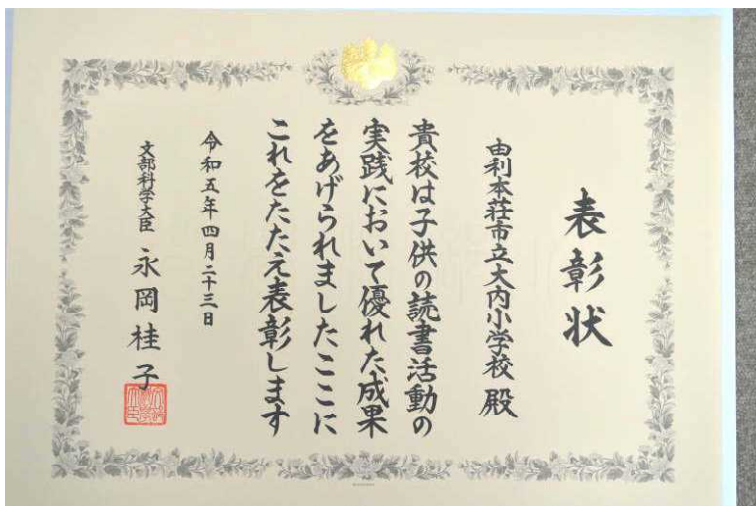 表彰状
由利本荘市立大内小学校 殿
貴校は子供の読書活動の
実践において優れた成果
をあげられましたここに
これをたたえ表彰します
令和五年四月二十三日
文部科学大臣 永岡桂子